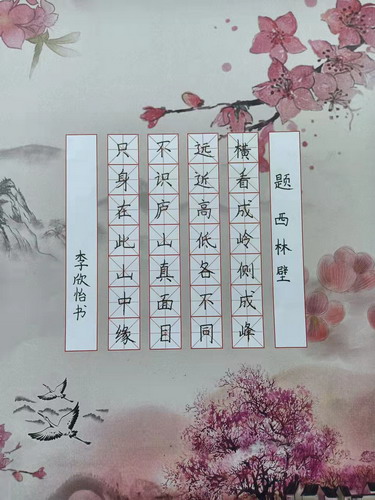 题西林壁
横看成岭侧成峰
远近高低各不同
不识庐山真面目
只身在此山中缘
李欣怡书